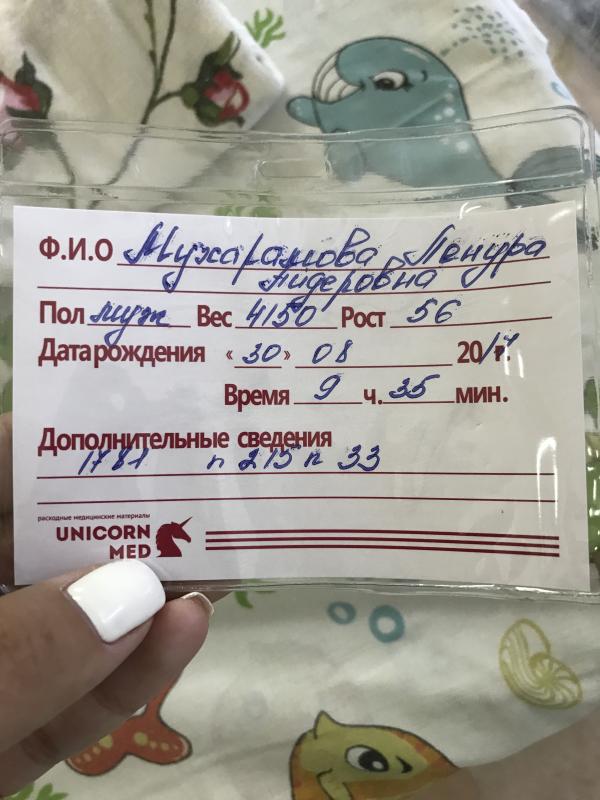 Ф.И.О Мухарамова Ленура
Лидеровна
Пол муж Вес 4150 Рост 56
Дата рождения «30» 08 2017.
Время 9 ч. 35 мин.
Дополнительные сведения
1781 п 215 п 33
расходные медицинские материалы
UNICORN
MED